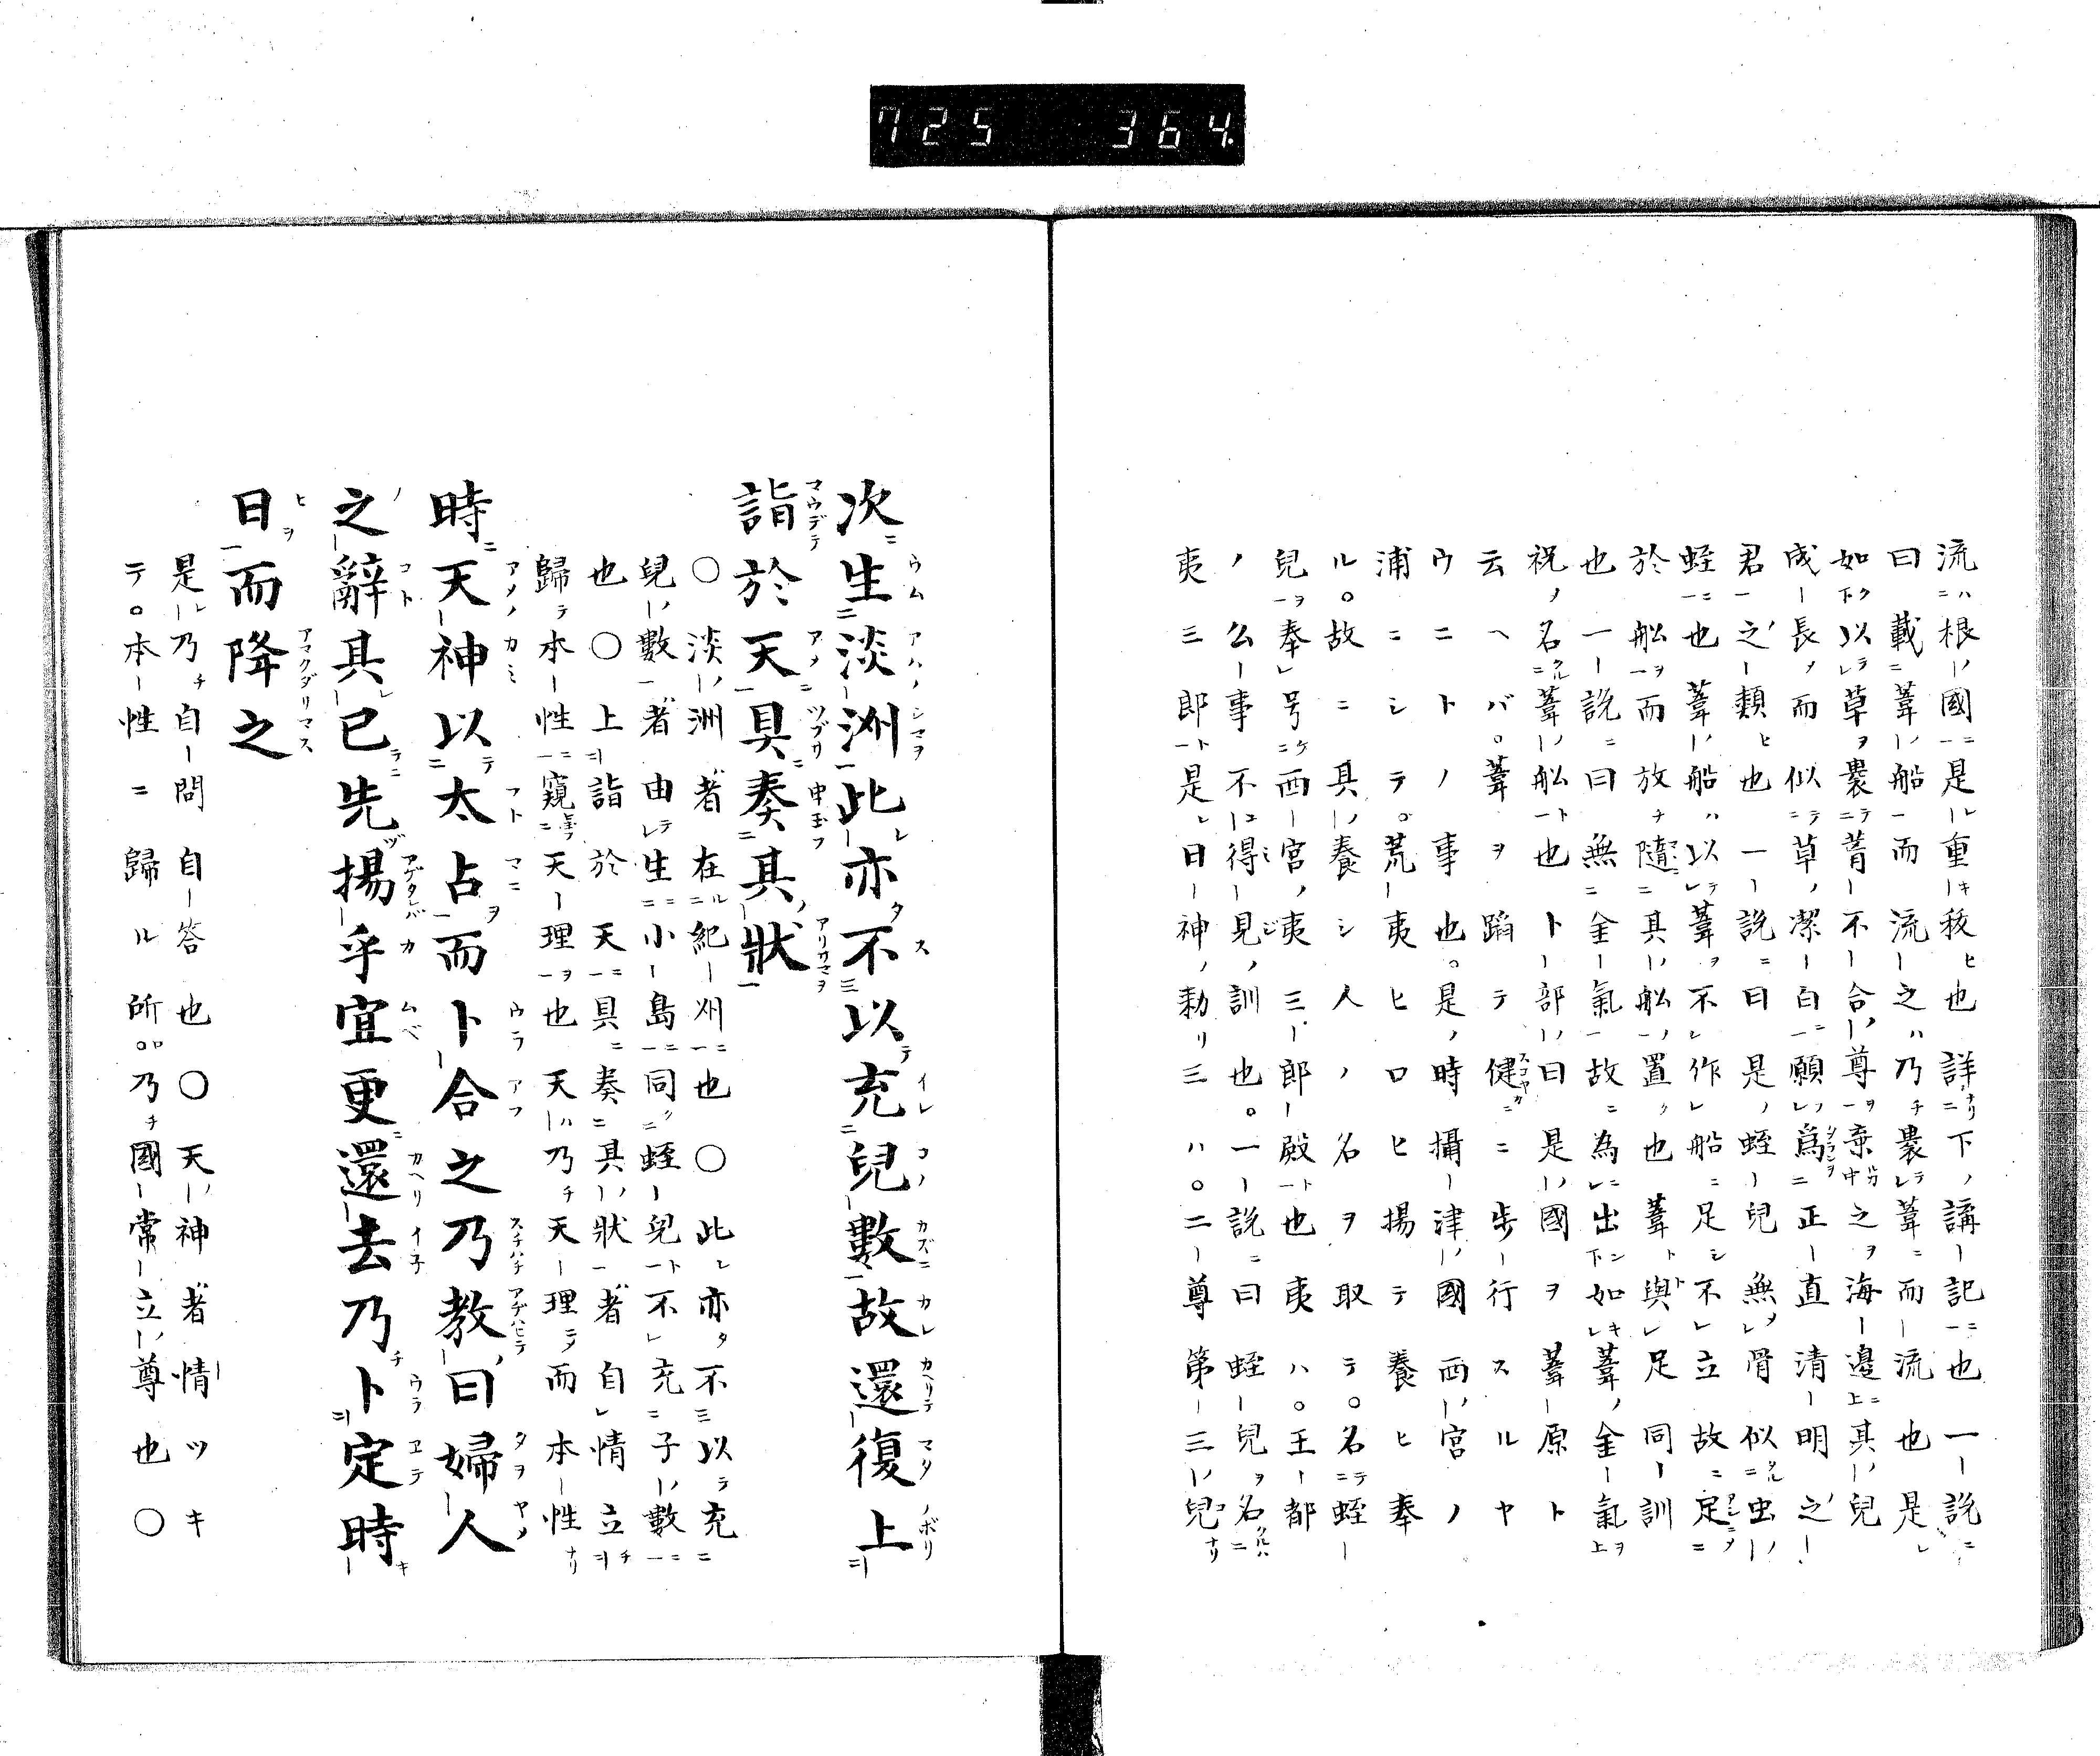 725 364.
流根國是重秡也詳下講記也一説
曰載葦船而流之乃裹葦而流也是
如以草裹菁不合尊棄之海邊其兒
成長而似草潔白願為正直清明之
君之類也一説曰是蛭兒無骨似虫
蛭也葦船以葦不作船足不立故定
於舩而放隨其舩置也葦與足同訓
也一説曰無金氣故為出如葦金氣
祝名葦舩也卜部曰是國ヲ葦原ト
云ヘバ。葦ヲ蹈テ健ニ歩行スルヤ
ウニトノ事也。是時攝津國西宮ノ
浦ニシテ。荒夷ヒロヒ揚テ養ヒ奉
ル。故ニ其養シ人ノ名ヲ取テ。名蛭
兒奉号西宮夷三郎殿也夷ハ。王都
ノ公事不得見訓也。一説曰蛭兒名
夷三郎是日神勅リ三ハ。二尊第三兒
次生淡洲此亦不以充兒數故還復上
詣於天具奏其狀
〇淡洲者在紀州也〇此亦不以充
兒數者由生小島同蛭兒不充子數
也〇上詣於天具奏其狀者自情立
歸本性窺天理也天乃天理而本性
時天神以太占而卜合之乃教曰婦人
之辭其已先揚乎宜更還去乃卜定時
日而降之
是乃自問自答也〇天神者情ツキ
テ。本性ニ歸ル所。乃國常立尊也〇